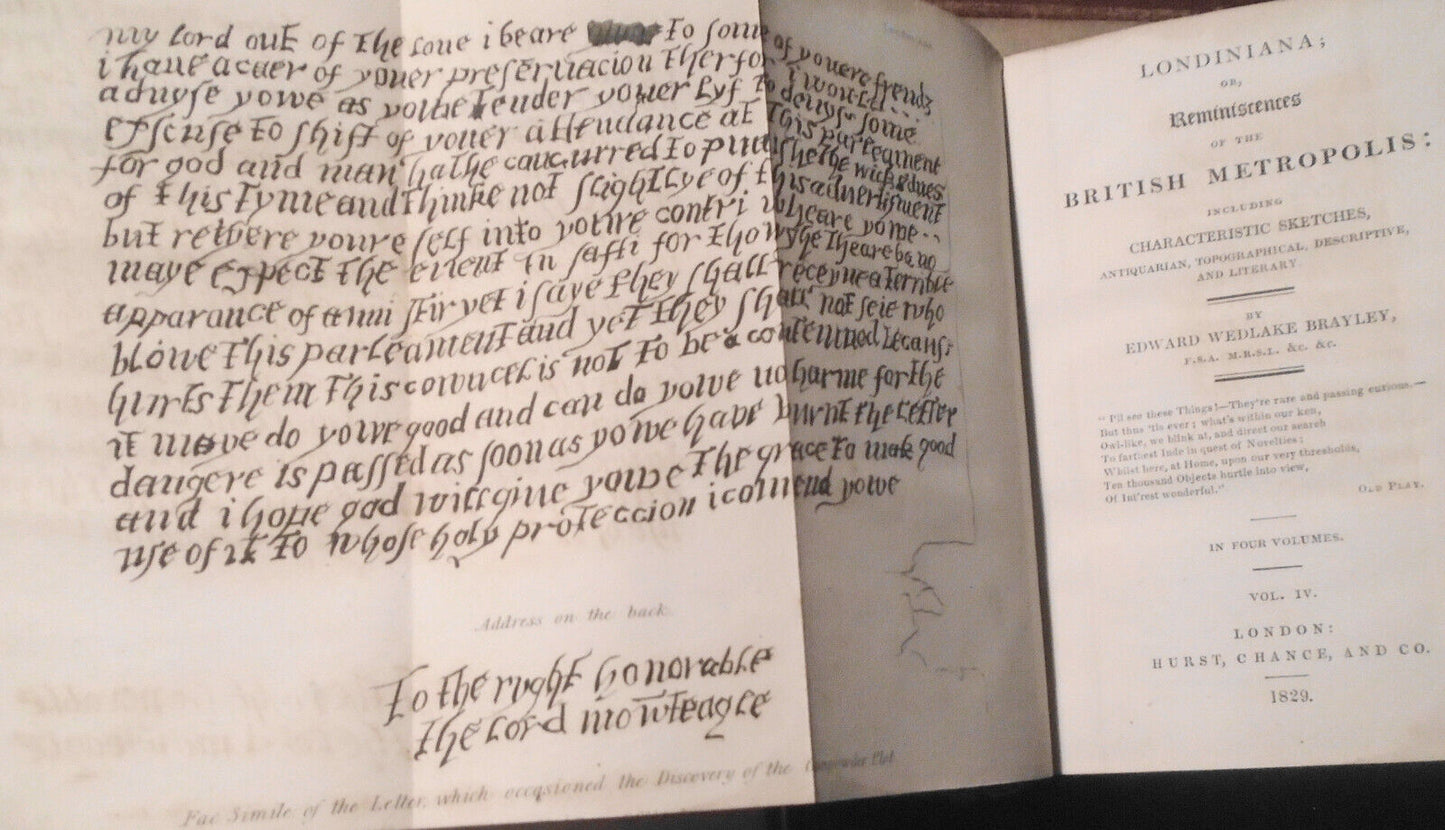 my lord out of the loue i beare to some of youere frends
i haue a caer of youer preseruacion therfor i would
aduyse yowe as yowe tender youer lyf to deuys some
exscuse to shift of youer attendance at this parleament
for god and man hathe concurred to punishe the wickednes
of this tyme and thinke not slightlye of this aduertisment
but retyere youre self into youre contri wheare yowe
maye expect the euent in safti for thowghe theare be no
apparance of anni stir yet i saye they shall receyue a terrible
blowe this parleament and yet they shall not seie who
hurts them this cowncel is not to be contemned becaus
it maye do yowe good and can do yowe no harme for the
dangere is passed as soon as yowe haue burnt the letter
and i hope god will giue yowe the grace to mak good
use of it to whose holy proteccion i comend yowe
Address on the back
to the ryght honorable
the lord mowteagle
Fac Simile of the Letter, which occasioned the Discovery of the Gunpowder Plot
LONDINIANA;
OR,
Reminiscences
OF THE
BRITISH METROPOLIS:
INCLUDING
CHARACTERISTIC SKETCHES,
ANTIQUARIAN, TOPOGRAPHICAL, DESCRIPTIVE,
AND LITERARY.
BY
EDWARD WEDLAKE BRAYLEY,
F.S.A. M.R.S.L. &c. &c.
"I'll see these Things!—They're rare and passing curious.—
But thus 'tis ever; what's within our ken,
Owl-like, we blink at, and direct our search
To farthest Inde in quest of Novelties;
Whilst here, at Home, upon our very thresholds,
Ten thousand Objects hurtle into view,
Of Int'rest wonderful."
OLD PLAY.
IN FOUR VOLUMES.
VOL. IV.
LONDON:
HURST, CHANCE, AND CO.
1829.